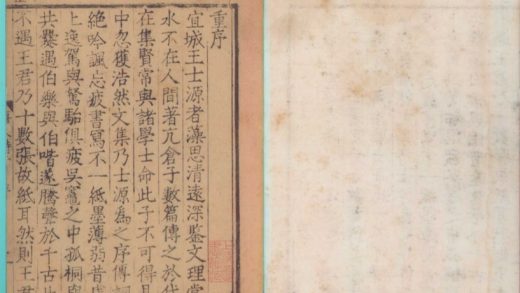 重序
宜城王士源者藻思清遠深鑒文理常
水不在人間著亢倉子數篇傳之於代
在集賢常與諸學士命此子不可得
中忽獲浩然文集乃士源為之序傳
絕吟諷忘疲書寫不一紙墨薄弱昔
上逸駕與駑駘俱疲吳竈之中孤桐
共爨遇伯樂與伯喈遂騰聲於千古
不遇王君乃十數張故紙耳然則王君